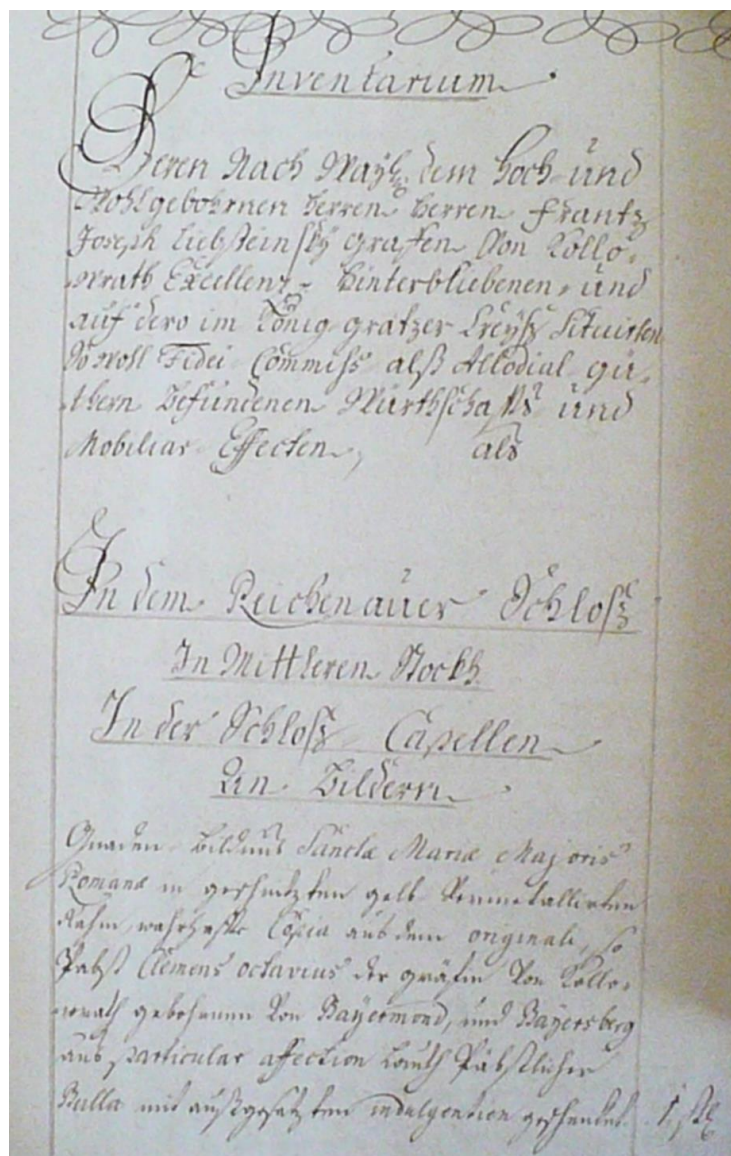 Inventarium
Deren Nach Wayl. dem Hoch- und
Wohlgebohrnen Herren Herren Frantz
Joseph Liebsteinsky Grafen Von Kollo-
wrath Excellenz Hinterbliebenen, und
auf dero im König gratzer Creyß Situirten
So woll Fidei Commiss alß Allodial gü-
thern Befundenen Würthschaffts und
Mobiliar Effecten, als
In dem Reichenauer Schloß
In Mittleren Stockh
In der Schloß Capellen
An Bildern
Gnaden Bildnus Sanctæ Mariæ Majoris
Romanæ in geschnitzten gelb
Rahm, wahrhafte Copia aus dem originali, so
Pabst Clemens octavius der gräfin Von Kollo-
wrath gebohrnen Von Bayermond, und Bayersberg
aus particular affection Lauth Päbstlicher
Bulla mit außgesetzten indulgentien geschenket 1 stk